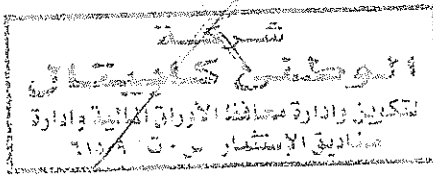 شركة
الوطني كابيتال
لتكوين وادارة محافظ الأوراق المالية وادارة
صناديق الإستثمار س.ت